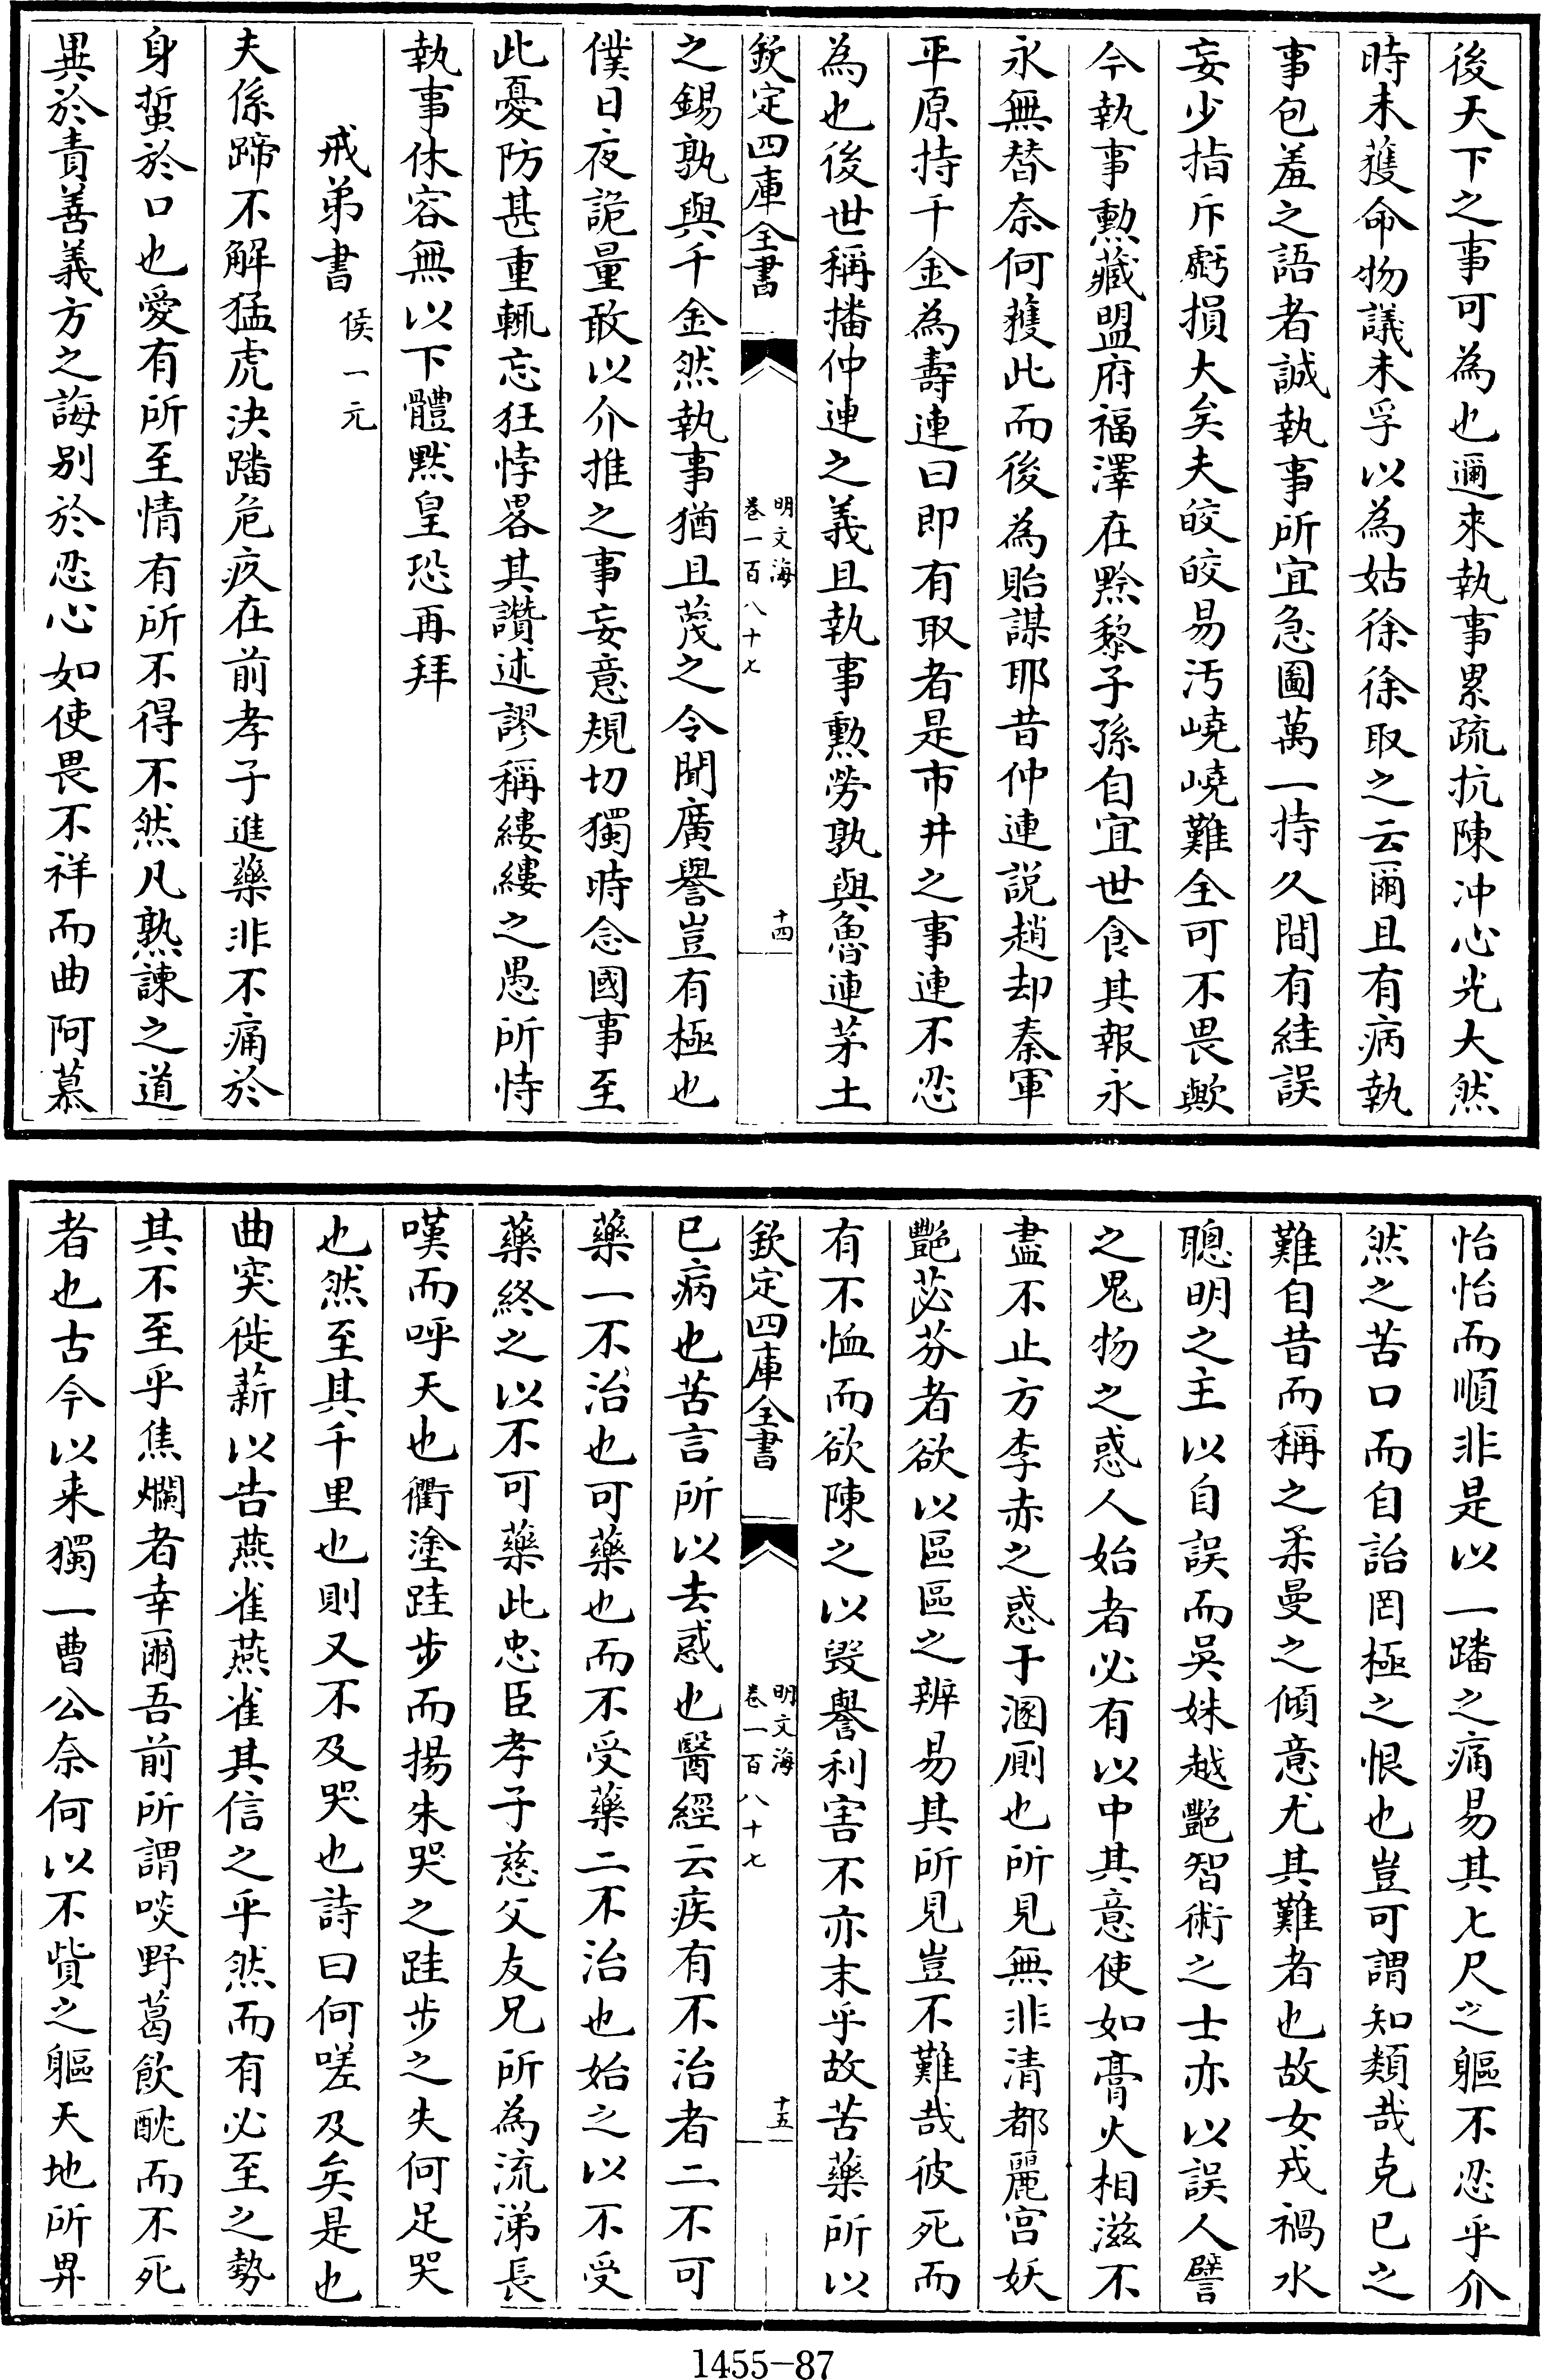 後天下之事可為也邇來執事累疏抗陳冲心光大然
時未獲命物議未孚以為姑徐徐取之云爾且有病執
事包羞之語者誠執事所宜急圖萬一持久間有絓誤
妄少指斥虧損大矣夫皎皎易汚嶢嶢難全可不畏歟
今執事勲藏盟府福澤在黔黎子孫自宜世食其報永
永無替奈何獲此而後為貽謀耶昔仲連說趙却秦軍
平原持千金為壽連曰即有取者是市井之事連不忍
為也後世稱播仲連之義且執事勲勞孰與魯連茅土
欽定四庫全書
明文海
卷一百八十七
十四
之錫孰與千金然執事猶且蔑之令聞廣譽豈有極也
僕日夜詭量敢以介推之事妄意規切獨時念國事至
此憂防甚重輒忘狂悖畧其讚述謬稱縷縷之愚所恃
執事休容無以下體黙皇恐再拜
戒弟書 侯一元
夫係蹄不解猛虎決蹯危疚在前孝子進藥非不痛於
身蜇於口也愛有所至情有所不得不然凡熟諫之道
異於責善義方之誨别於忍心如使畏不祥而曲阿慕
怡怡而順非是以一蹯之痛易其七尺之軀不忍乎介
然之苦口而自詒罔極之恨也豈可謂知類哉克已之
難自昔而稱之柔曼之傾意尤其難者也故女戎禍水
聰明之主以自誤而吳姝越艶智術之士亦以誤人譬
之鬼物之惑人始者必有以中其意使如膏火相滋不
盡不止方李赤之惑于溷厠也所見無非清都麗宫妖
艷苾芬者欲以區區之辨易其所見豈不難哉彼死而
有不恤而欲陳之以毀譽利害不亦末乎故苦藥所以
欽定四庫全書
明文海
卷一百八十七
十五
已病也苦言所以去惑也醫經云疾有不治者二不可
藥一不治也可藥也而不受藥二不治也始之以不受
藥終之以不可藥此忠臣孝子慈父友兄所為流涕長
嘆而呼天也衢塗跬步而揚朱哭之跬步之失何足哭
也然至其千里也則又不及哭也詩曰何嗟及矣是也
曲突徙薪以告燕雀燕雀其信之乎然而有必至之勢
其不至乎焦爛者幸爾吾前所謂啖野葛飲酖而不死
者也古今以来獨一曹公奈何以不貲之軀天地所畀
1455-87